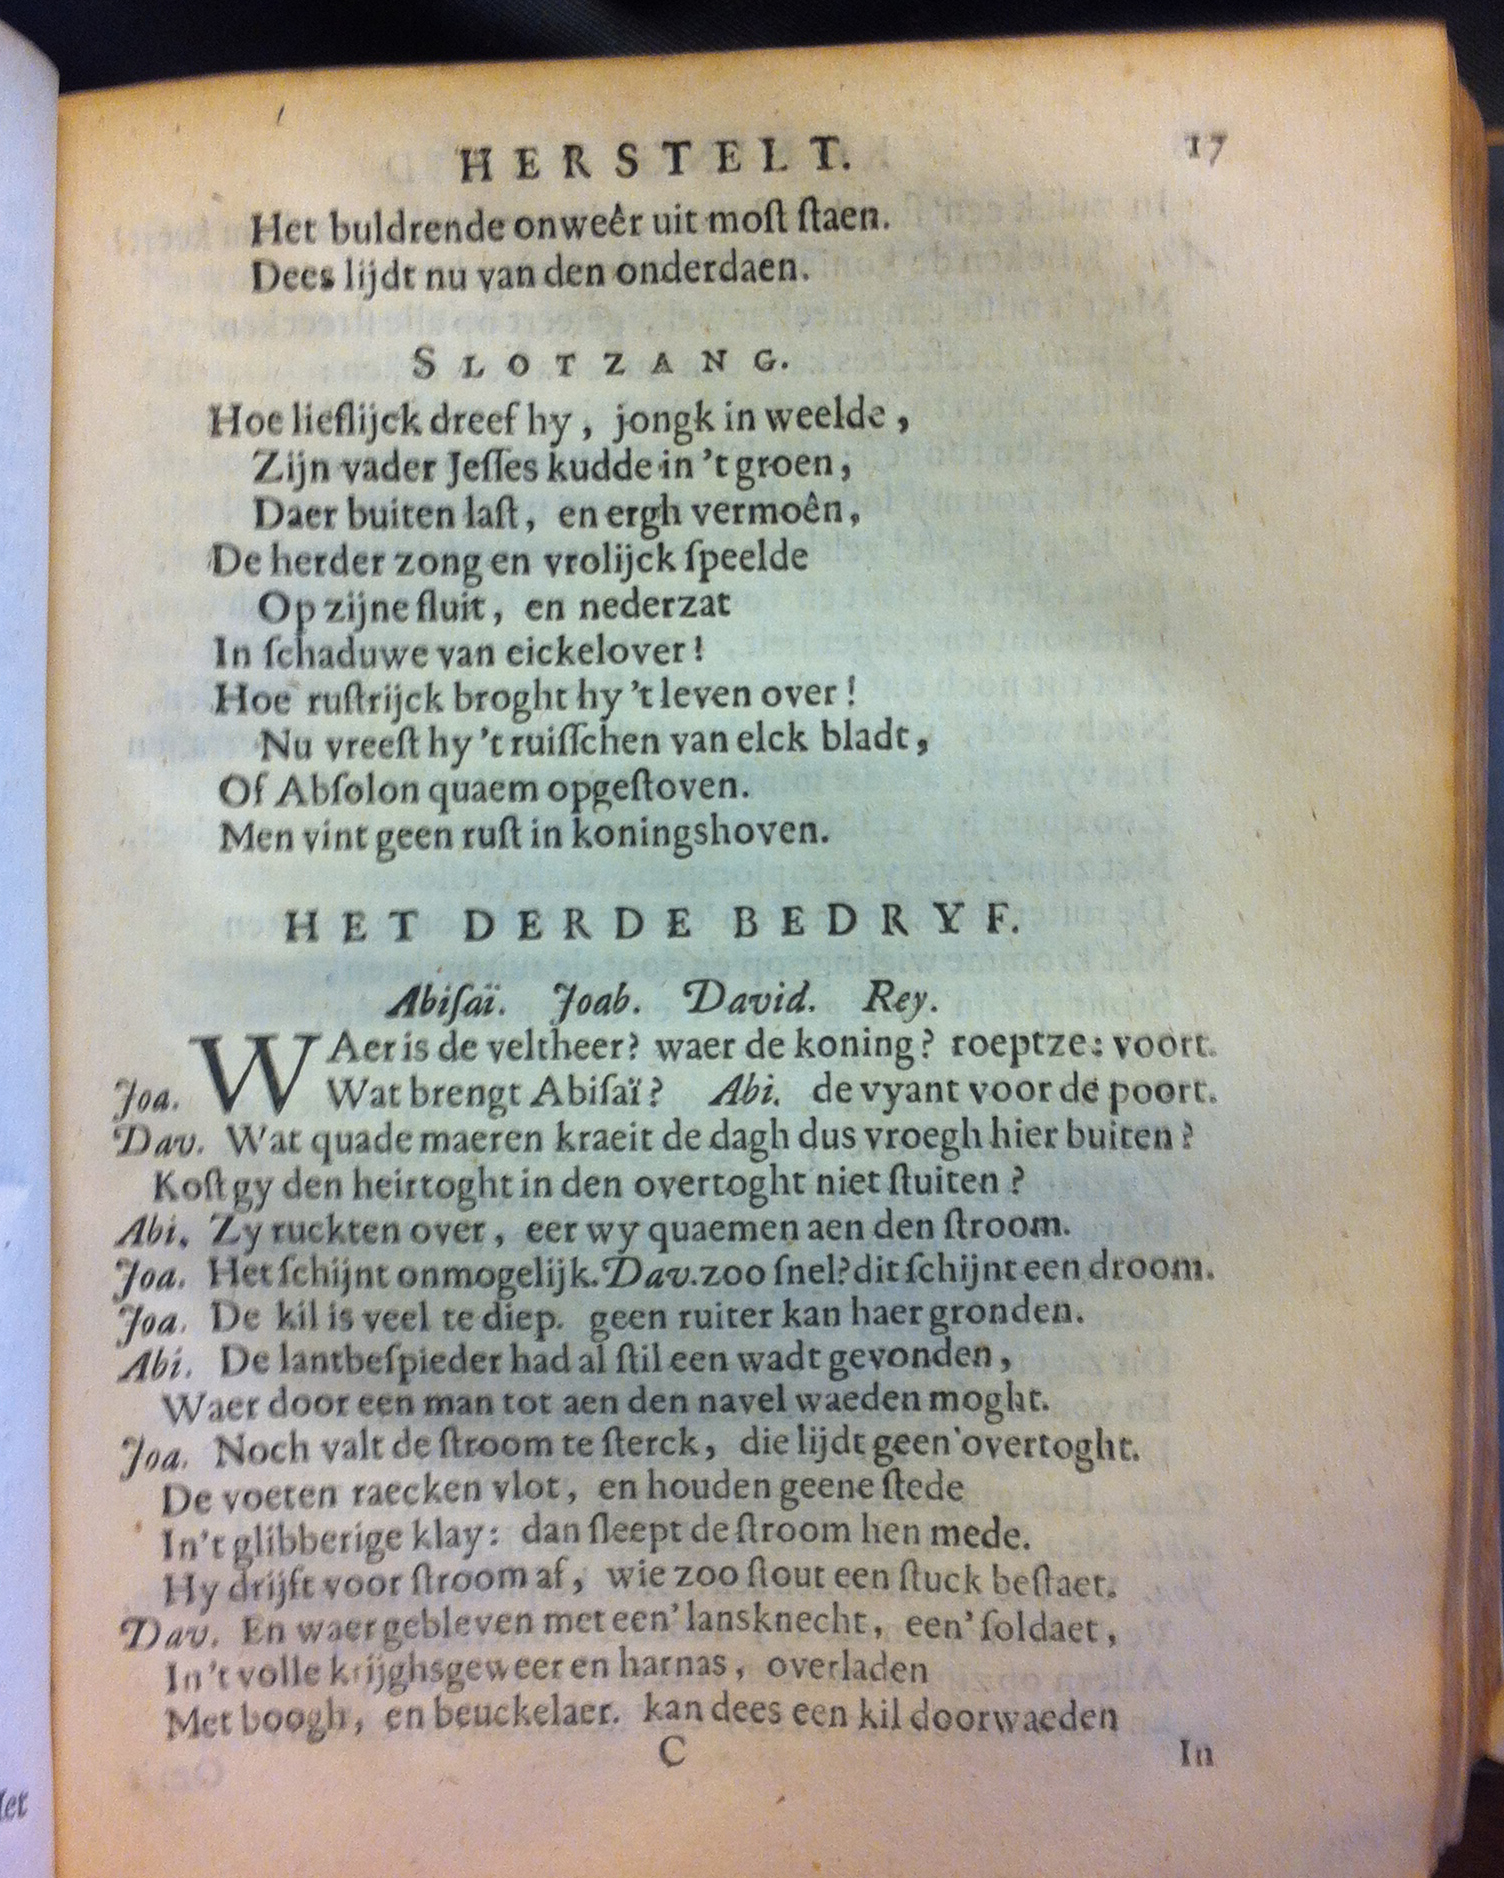 HERSTELT. 17
Het buldrende onweêr uit moſt ſtaen.
Dees lijdt nu van den onderdaen.
SLOTZANG.
Hoe lieflijck dreef hy, jongk in weelde,
Zijn vader Jeſſes kudde in 't groen,
Daer buiten laſt, en ergh vermoên,
De herder zong en vrolijck ſpeelde
Op zijne fluit, en nederzat
In ſchaduwe van eickelover!
Hoe ruſtrijck broght hy 't leven over!
Nu vreeſt hy 't ruiſſchen van elck bladt,
Of Abſolon quaem opgeſtoven.
Men vint geen ruſt in koningshoven.
HET DERDE BEDRYF.
Abiſaï. Joab. David. Rey.
WAer is de veltheer? waer de koning? roeptze: voort.
Joa. Wat brengt Abiſaï? Abi. de vyant voor de poort.
Dav. Wat quade maeren kraeit de dagh dus vroegh hier buiten?
Koſt gy den heirtoght in den overtoght niet ſtuiten?
Abi. Zy ruckten over, eer wy quaemen aen den ſtroom.
Joa. Het ſchijnt onmogelijk. Dav. zoo ſnel? dit ſchijnt een droom.
Joa. De kil is veel te diep. geen ruiter kan haer gronden.
Abi. De lantbeſpieder had al ſtil een wadt gevonden,
Waer door een man tot aen den navel waeden moght.
Joa. Noch valt de ſtroom te ſterck, die lijdt geen overtoght.
De voeten raecken vlot, en houden geene ſtede
In 't glibberige klay: dan ſleept de ſtroom hen mede.
Hy drijft voor ſtroom af, wie zoo ſtout een ſtuck beſtaet.
Dav. En waer gebleven met een' lansknecht, een' ſoldaet,
In 't volle krijghsgeweer en harnas, overladen
Met boogh, en beuckelaer. kan dees een kil doorwaeden
C In